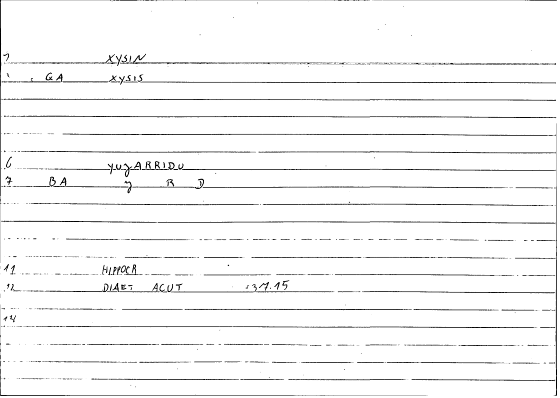 1 XYSIN
GA XYSIS
6 yuzARRIDU
7 BA y R D
11 HIPPOCR
12 DIAET ACUT :37.15
14